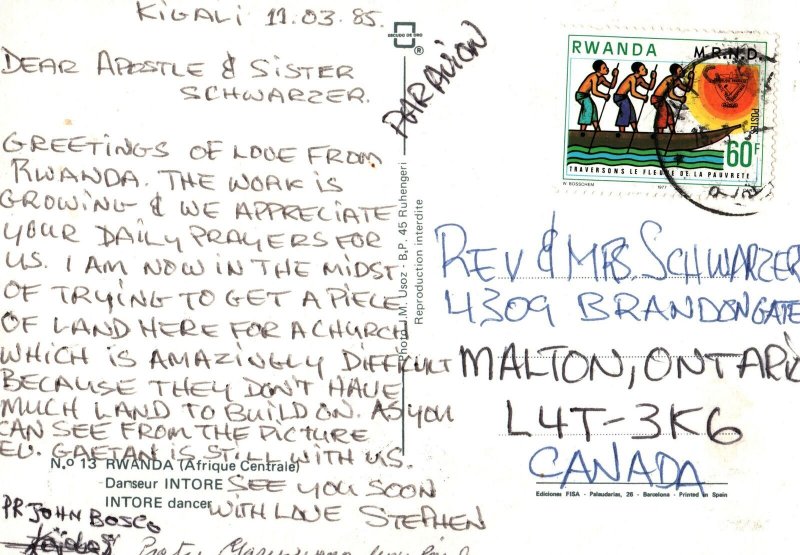 KIGALI 11.03.85.
DEAR APOSTLE & SISTER
SCHWARZER.
GREETINGS OF LOVE FROM
RWANDA. THE WORK IS
GROWING & WE APPRECIATE
YOUR DAILY PRAYERS FOR
US. I AM NOW IN THE MIDST
OF TRYING TO GET A PIECE
OF LAND HERE FOR A CHURCH
WHICH IS AMAZINGLY DIFFICULT
BECAUSE THEY DON'T HAVE
MUCH LAND TO BUILD ON. AS YOU
CAN SEE FROM THE PICTURE
EV. GAETAN IS STILL WITH US.
SEE YOU SOON
WITH LOVE STEPHEN
PR. JOHN BOSCO
N.º 13 RWANDA (Afrique Centrale)
Danseur INTORE
INTORE dancer
ESCUDO DE ORO
®
Photo J.M. Usoz - B.P. 45 Ruhengeri
Reproduction interdite
PAR AVION
RWANDA M.R.N.D.
POSTES
60F
TRAVERSONS LE FLEUVE DE LA PAUVRETE
W. BOSSCHEM 1977
REV & MRS. SCHWARZER
4309 BRANDONGATE
MALTON, ONTARIO
L4T-3K6
CANADA
Ediciones FISA - Palauderias, 26 - Barcelona - Printed in Spain